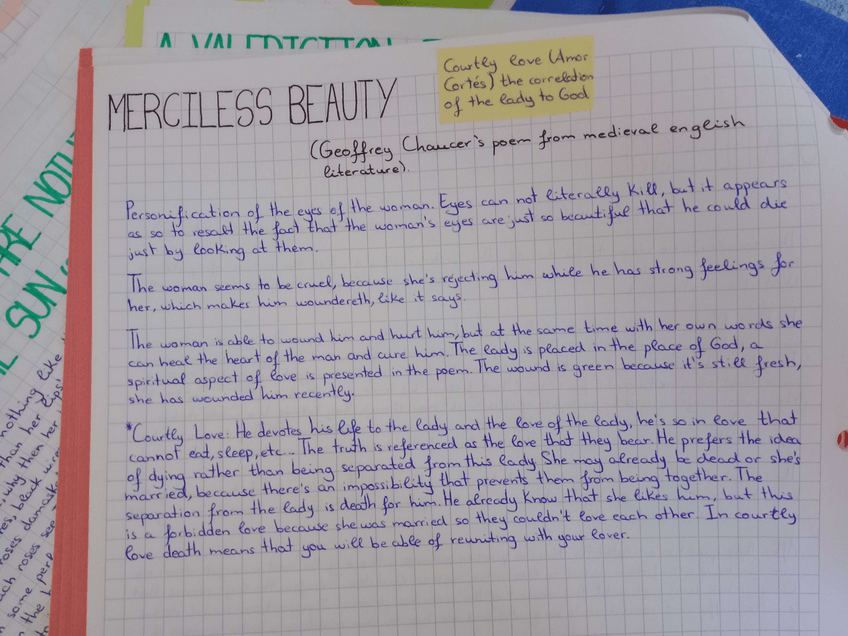 A VALEDICTION
MERCILESS BEAUTY
Courtly love (Amor
Cortés) the correlation
of the lady to God
(Geoffrey Chaucer's poem from medieval english
literature).
Personification of the eyes of the woman. Eyes can not literally kill, but it appears
as so to resalt the fact that the woman's eyes are just so beautiful that he could die
just by looking at them.
The woman seems to be cruel, because she's rejecting him while he has strong feelings for
her, which makes him woundereth, like it says.
The woman is able to wound him and hurt him, but at the same time with her own words she
can heal the heart of the man and cure him. The lady is placed in the place of God, a
spiritual aspect of love is presented in the poem. The wound is green because it's still fresh,
she has wounded him recently.
*Courtly Love: He devotes his life to the lady and the love of the lady, he's so in love that
cannot eat, sleep, etc... The truth is referenced as the love that they bear. He prefers the idea
of dying rather than being separated from this lady. She may already be dead or she's
married, because there's an impossibility that prevents them from being together. The
separation from the lady is death for him. He already know that she likes him, but this
is a forbidden love because she was married so they couldn't love each other. In courtly
love death means that you will be able of reuniting with your lover.
ARE NOTH
SUN
nothing like
than her lips'
why then her
black
roses damask
such roses see
in some perf
the